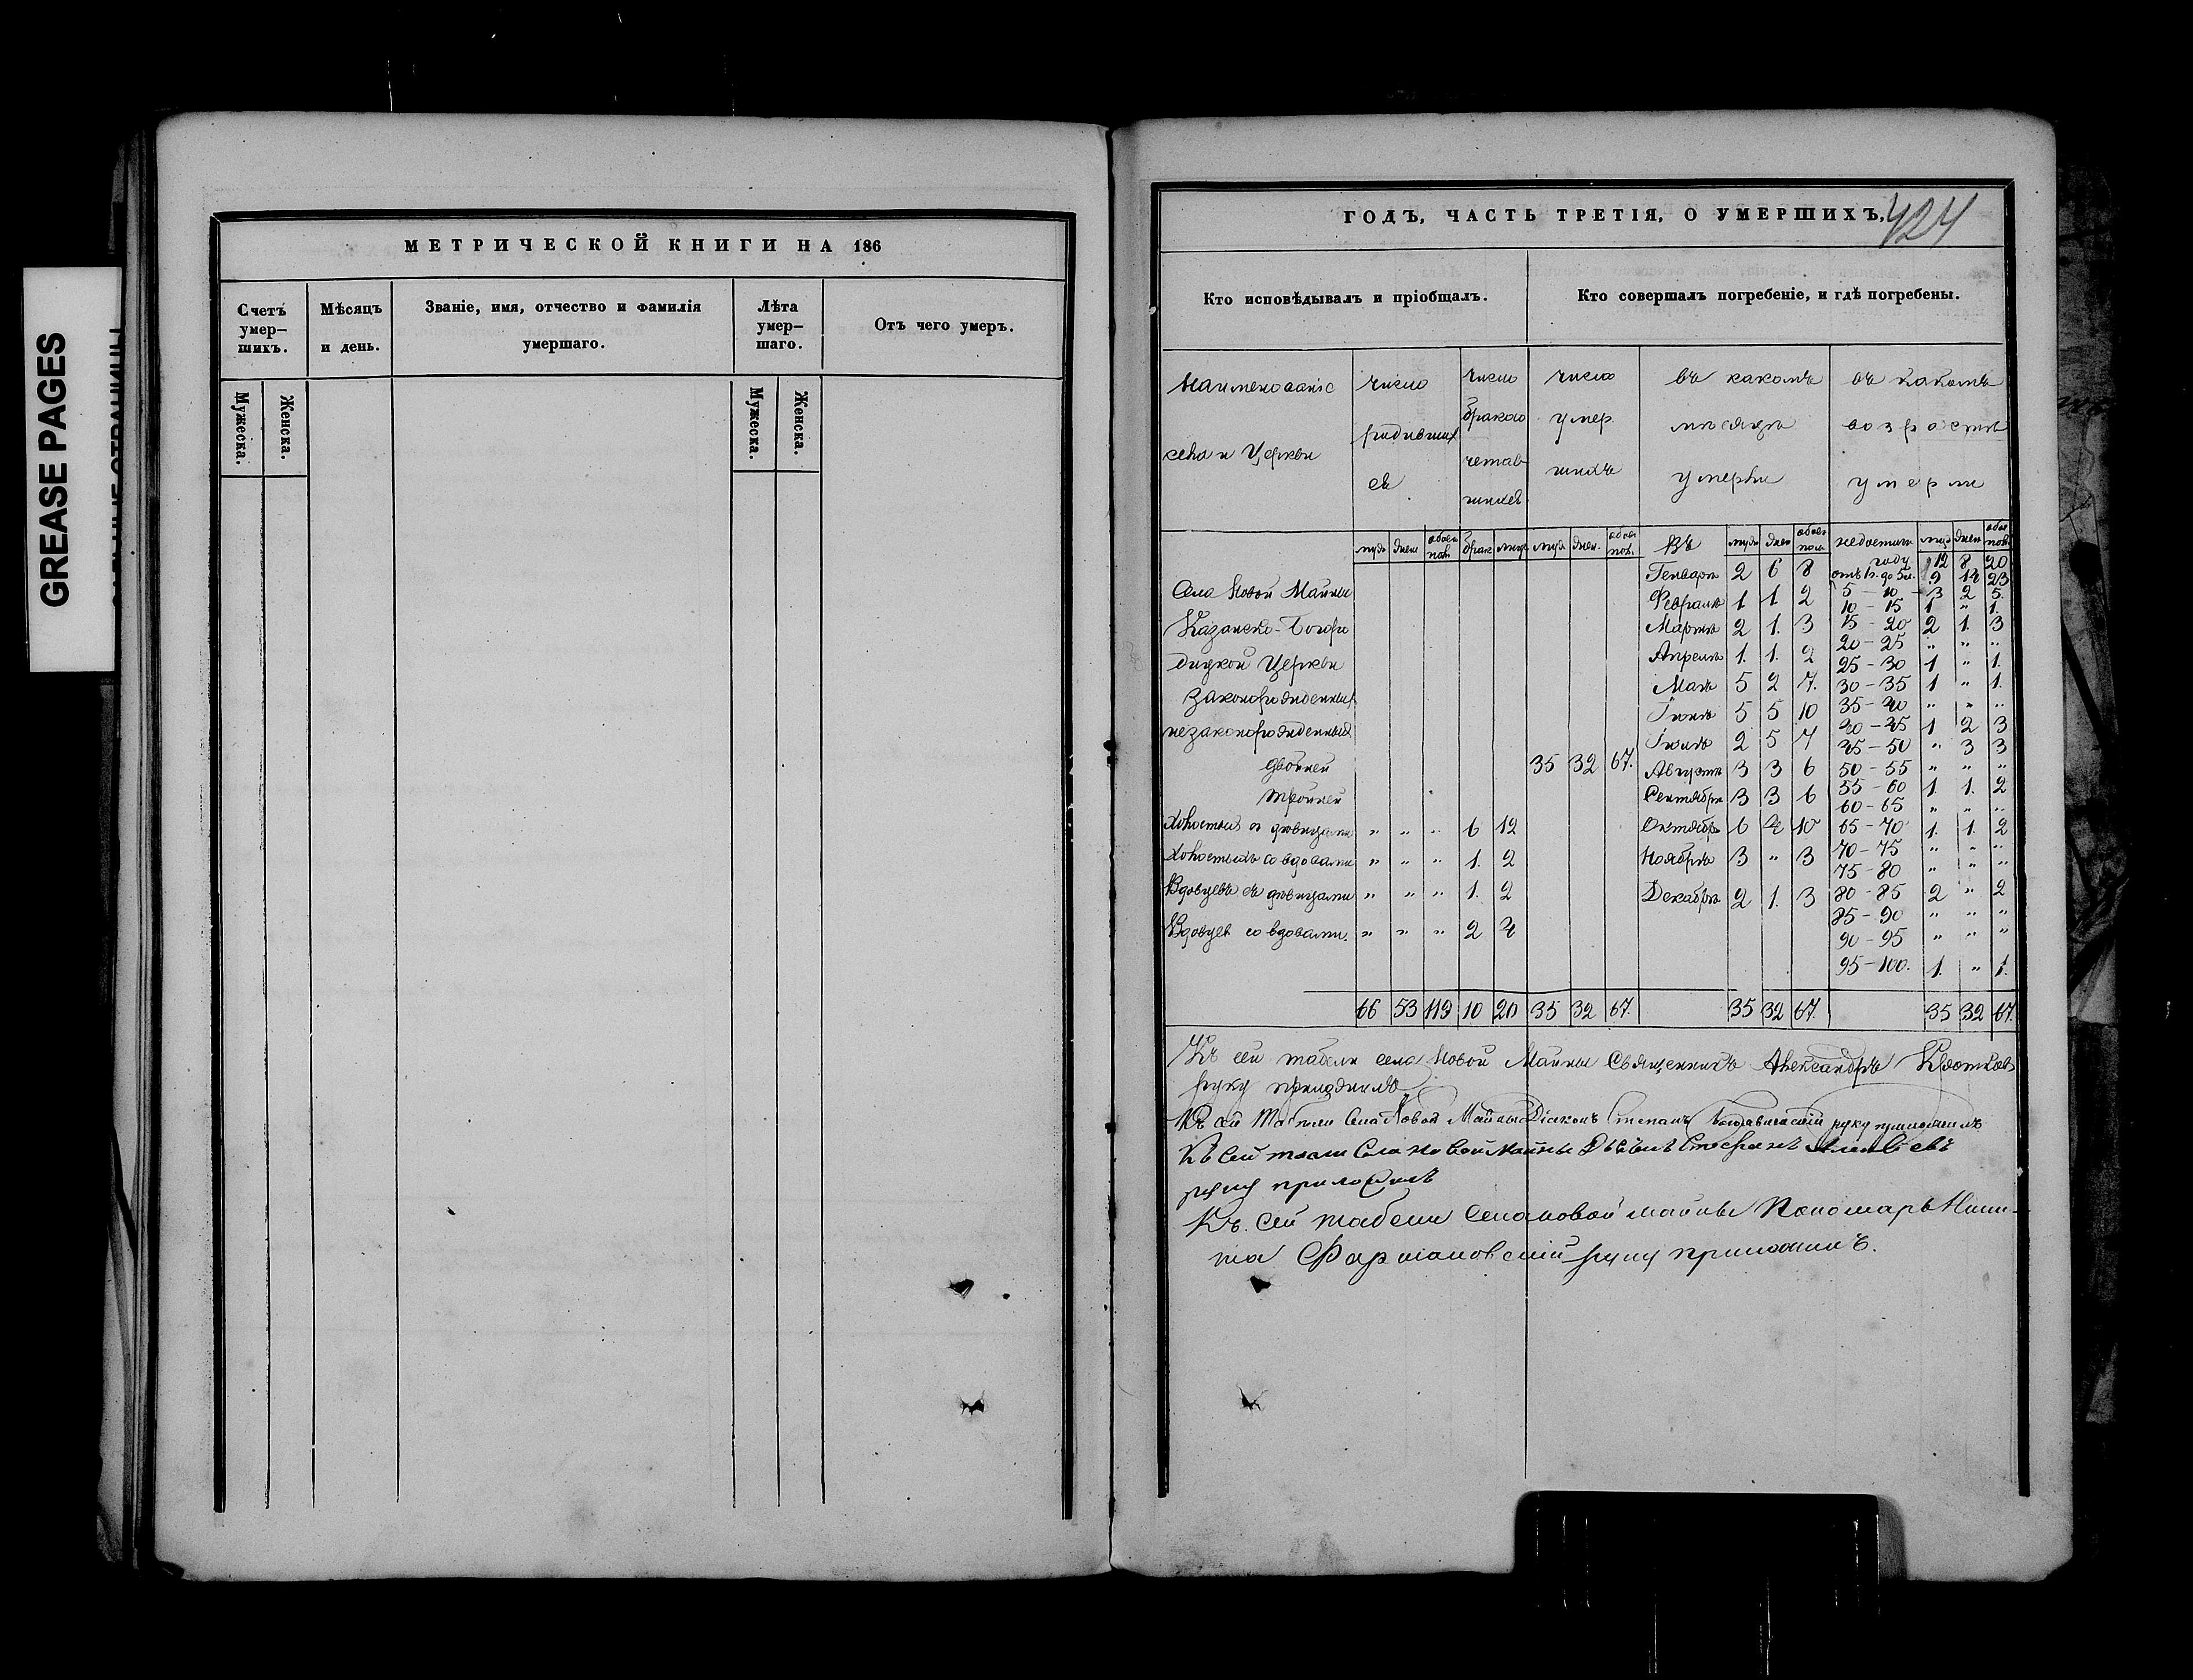 GREASE PAGES
МЕТРИЧЕСКОЙ КНИГИ НА 186
Счетъ умер-шихъ.
Мѣсяцъ и день.
Званіе, имя, отчество и фамилія умершаго.
Лѣта умер-шаго.
Отъ чего умеръ.
Мужеска.
Женска.
Мужеска.
Женска.
ГОДЪ, ЧАСТЬ ТРЕТІЯ, О УМЕРШИХЪ. 424
Кто исповѣдывалъ и пріобщалъ.
Кто совершалъ погребеніе, и гдѣ погребены.
Наименованіе села и Церкви
число родивших ся
число браковъ
число умер шихъ
въ какомъ мѣсяцѣ умерли
въ какомъ возрастѣ умерли
Села Новой Майны
Казанско-Богоро
дицкой Церкви
законорожденных
незаконорожденных
двойней
тройней
35 32 67.
Холостых съ дѣвицами " " " 6 12
Холостыхъ со вдовами " " " 1. 2
Вдовцевъ съ дѣвицами " " " 1. 2
Вдовцев со вдовами. " " " 2 4
Въ
Генварѣ 2 6 8
Февралѣ 1 1. 2
Мартѣ 2 1. 3
Апрелѣ 1. 1. 2
Маѣ 5 2 7.
Іюнѣ 5 5 10
Іюлѣ 2 5 7
Августѣ 3 3 6
Сентябрѣ 3 3 6
Октябрѣ 6 4 10
Ноябрѣ 3 " 3
Декабрѣ 2 1. 3
году 12 8 20
отъ 1г. до 5и. 9 14 23
5 - 10 - 3 2 5.
10 - 15 1 " 1.
15 - 20 2 1. 3
20 - 25 " " "
25 - 30 1 " 1.
30 - 35 1 " 1.
35 - 40 " " "
40 - 45 1 2 3
45 - 50 " 3 3
50 - 55 " " "
55 - 60 1. 1. 2
60 - 65 " " "
65 - 70 1. 1. 2
70 - 75 " " "
75 - 80 " " "
80 - 85 2 " 2
85 - 90 " " "
90 - 95 " " "
95 - 100. 1. " 1.
66 53 119 10 20 35 32 67. 35 32 67. 35 32 67.
Къ сей табели села Новой Майны Священникъ Александръ Кротковъ
руку приложилъ
Къ сей Табели Села Новой Майны Діаконъ Степанъ руку приложилъ
Къ сей Села Новой Майны Стефанъ
руку приложилъ
Къ сей табели Села новой майны Пономарь Ники-
та руку приложилъ.